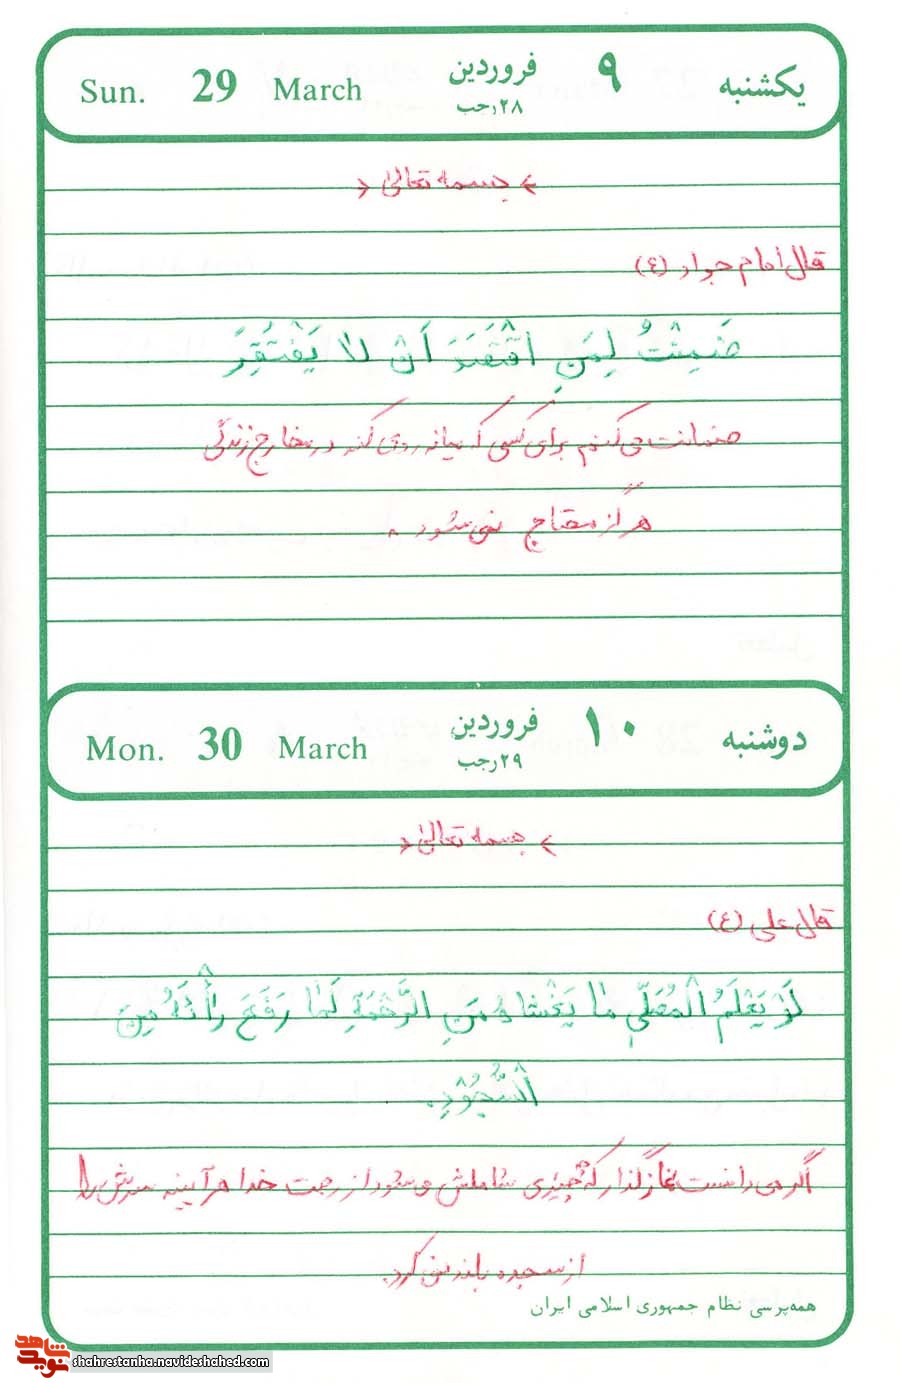 یکشنبه ۹ فروردین ۲۸ رجب March 29 Sun.
بسمه تعالی
قال امام جواد (ع)
ضَمِنْتُ لِمَنِ اقْتَصَدَ اَنْ لا یَفْتَقِرَ
ضمانت می کنم برای کسی که میانه روی کند در مخارج زندگی
هرگز محتاج نمی شود.
دوشنبه ۱۰ فروردین ۲۹ رجب March 30 Mon.
بسمه تعالی
قال علی (ع)
لَوْ یَعْلَمُ الْمُصَلّی مٰا یَغْشاهُ مِنَ الرَّحْمَةِ لَمٰا رَفَعَ رَأْسَهُ مِنَ
السُّجُوْدِ.
اگر می دانست نمازگذار که چیزی شاملش می شود از رحمت خدا هر آیینه سرش را
از سجده بلند نمی کرد.
همه‌پرسی نظام جمهوری اسلامی ایران
نوید شاهد shahrestanha.navideshahed.com